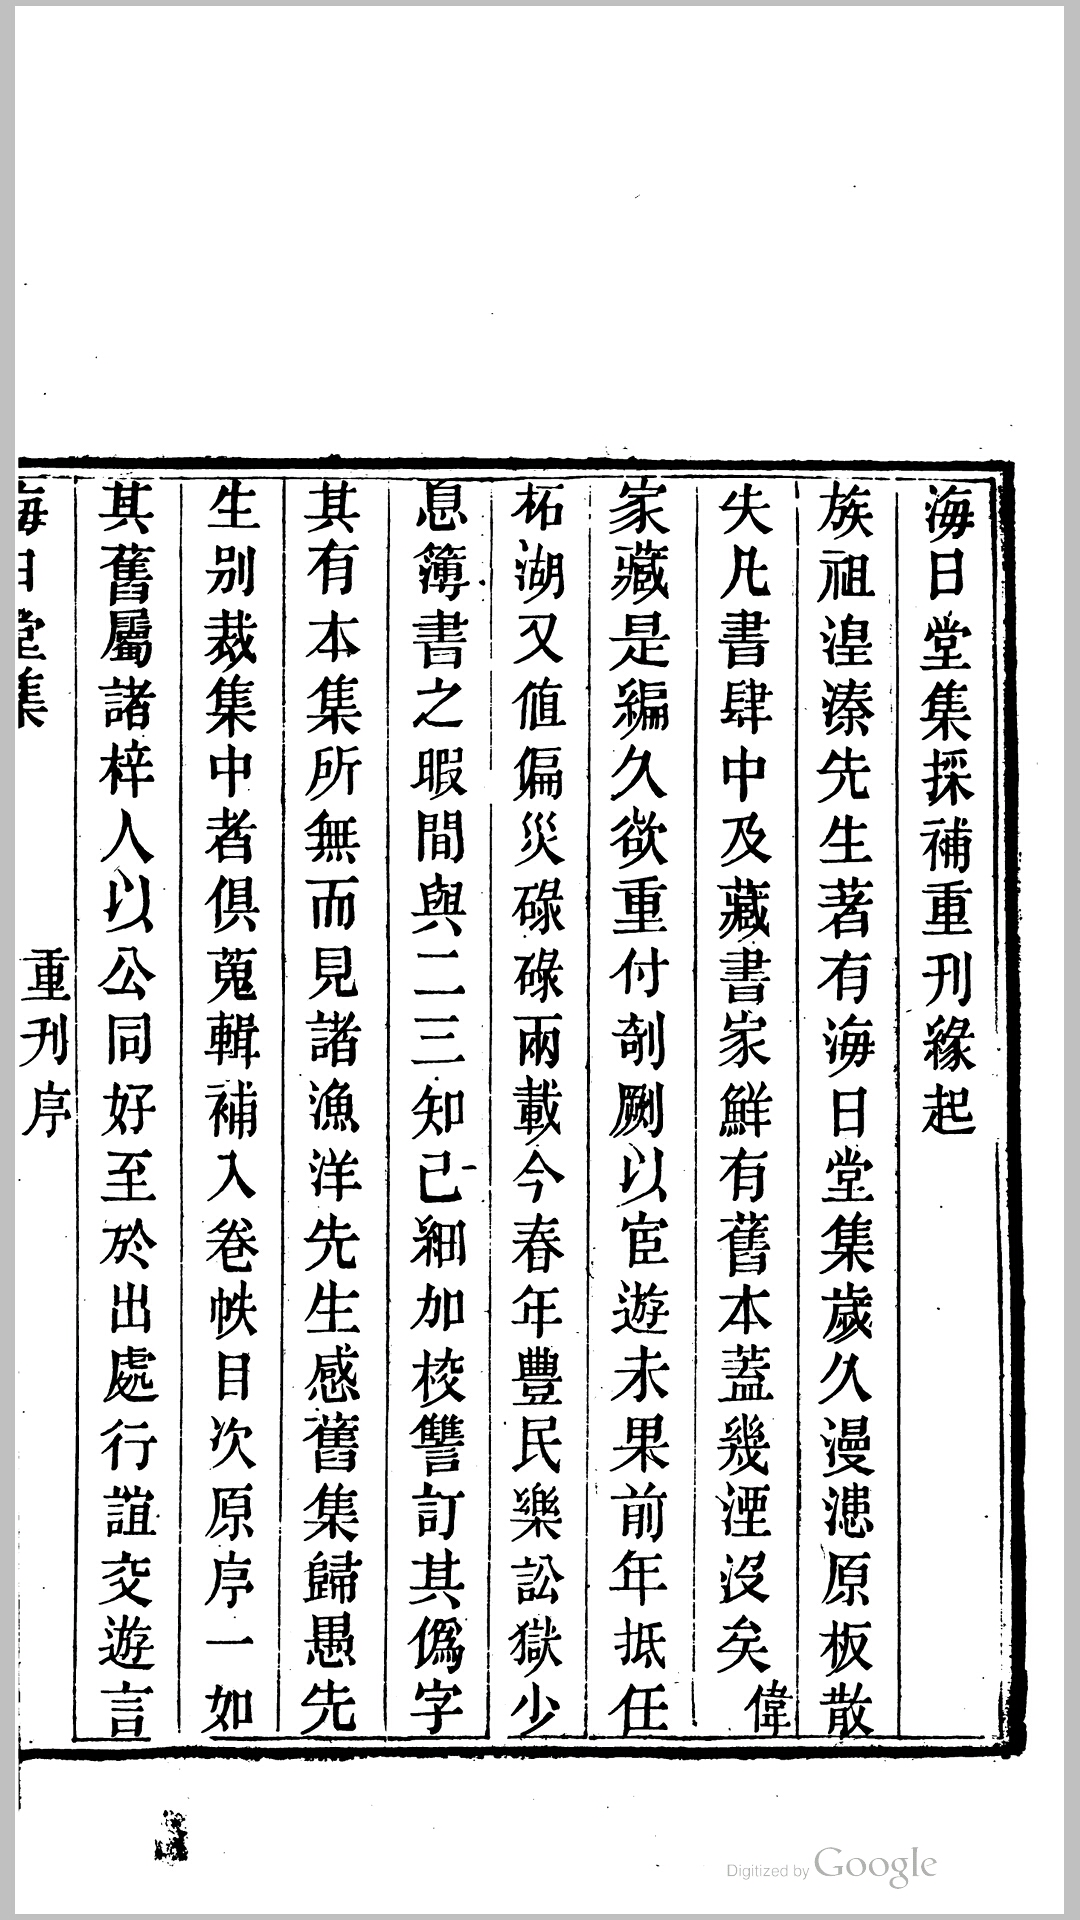 海日堂集採補重刊緣起
族祖湟溱先生著有海日堂集歲久漫漶原板散
失凡書肆中及藏書家鮮有舊本蓋幾湮沒矣偉
家藏是編久欲重付剞劂以宦遊未果前年抵任
柘湖又值偏災碌碌兩載今春年豐民樂訟獄少
息簿書之暇間與二三知己細加校讐訂其僞字
其有本集所無而見諸漁洋先生感舊集歸愚先
生别裁集中者俱蒐輯補入卷帙目次原序一如
其舊屬諸梓人以公同好至於出處行誼交遊言
海日堂集 重刊序
Digitized by Google